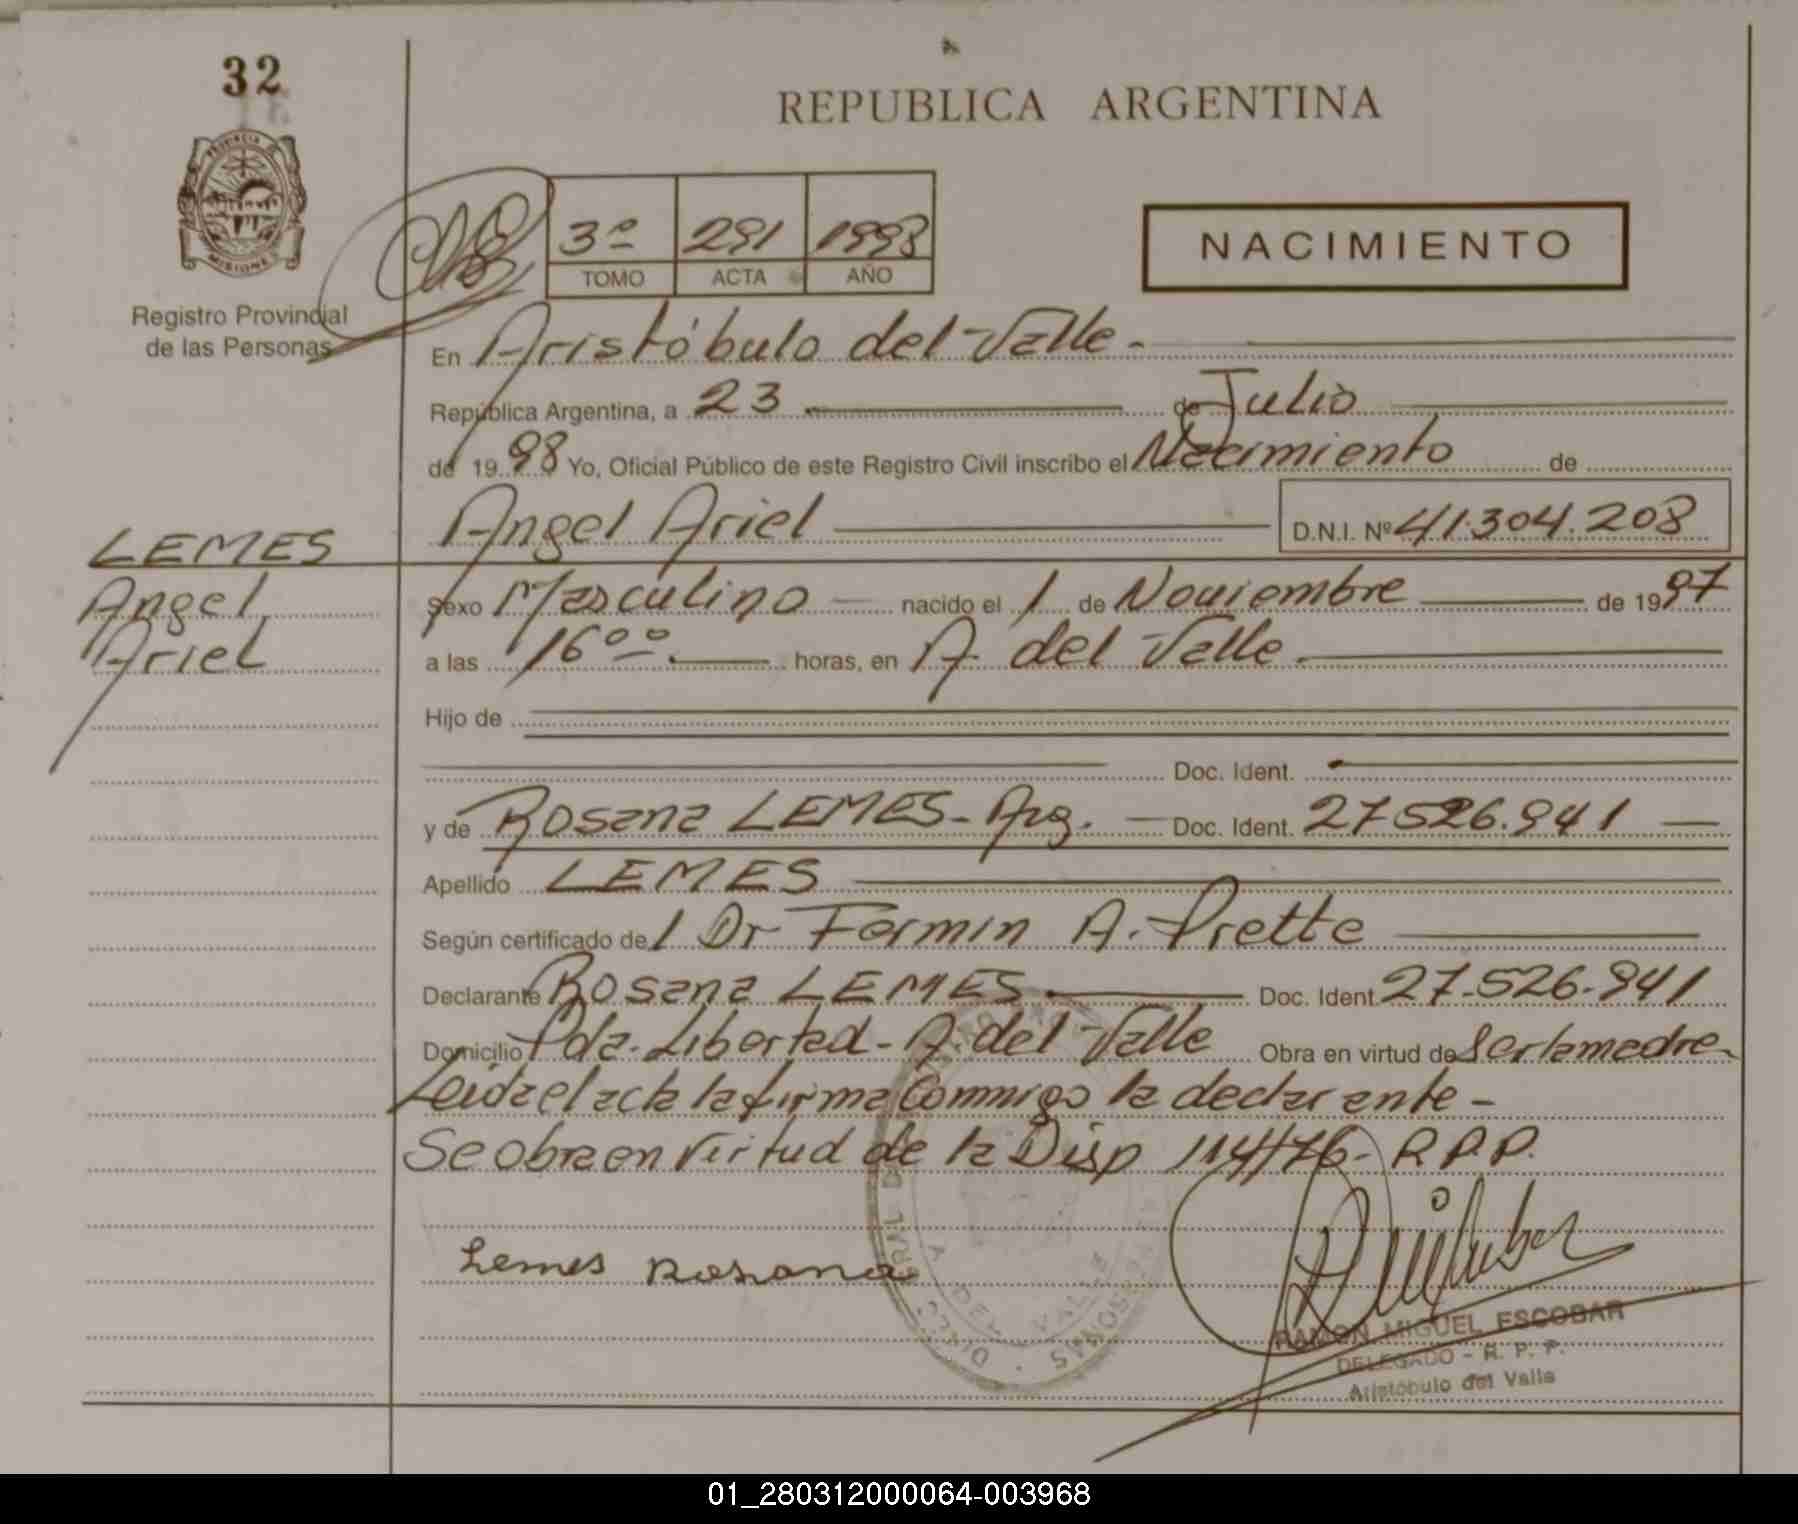 32
REPUBLICA ARGENTINA
PROVINCIA DE
MISIONES
Registro Provincial
de las Personas
3º 291 1998
TOMO ACTA AÑO
NACIMIENTO
En Aristóbulo del Valle.-
República Argentina, a 23 de Julio
de 1998 Yo, Oficial Público de este Registro Civil inscribo el Nacimiento de
Angel Ariel D.N.I. Nº 41.304.208
LEMES
Angel
Ariel
Sexo Masculino nacido el 1 de Noviembre de 1997
a las 16ºº horas, en A. del Valle.
Hijo de
Doc. Ident.
y de Rosana LEMES - Arg. Doc. Ident. 27.526.941
Apellido LEMES
Según certificado del Dr Fermin A. Prette
Declarante Rosana LEMES Doc. Ident. 27.526.941
Domicilio Pda. Libertad - A. del Valle Obra en virtud de Ser la madre.
Leida el acta la firma Conmigo la declarante -
Se obra en virtud de la Disp 114/76 - R.P.P.
Lemes Rosana
A. DEL VALLE
RAMON MIGUEL ESCOBAR
DELEGADO - R. P. P.
Aristóbulo del Valle
01_280312000064-003968